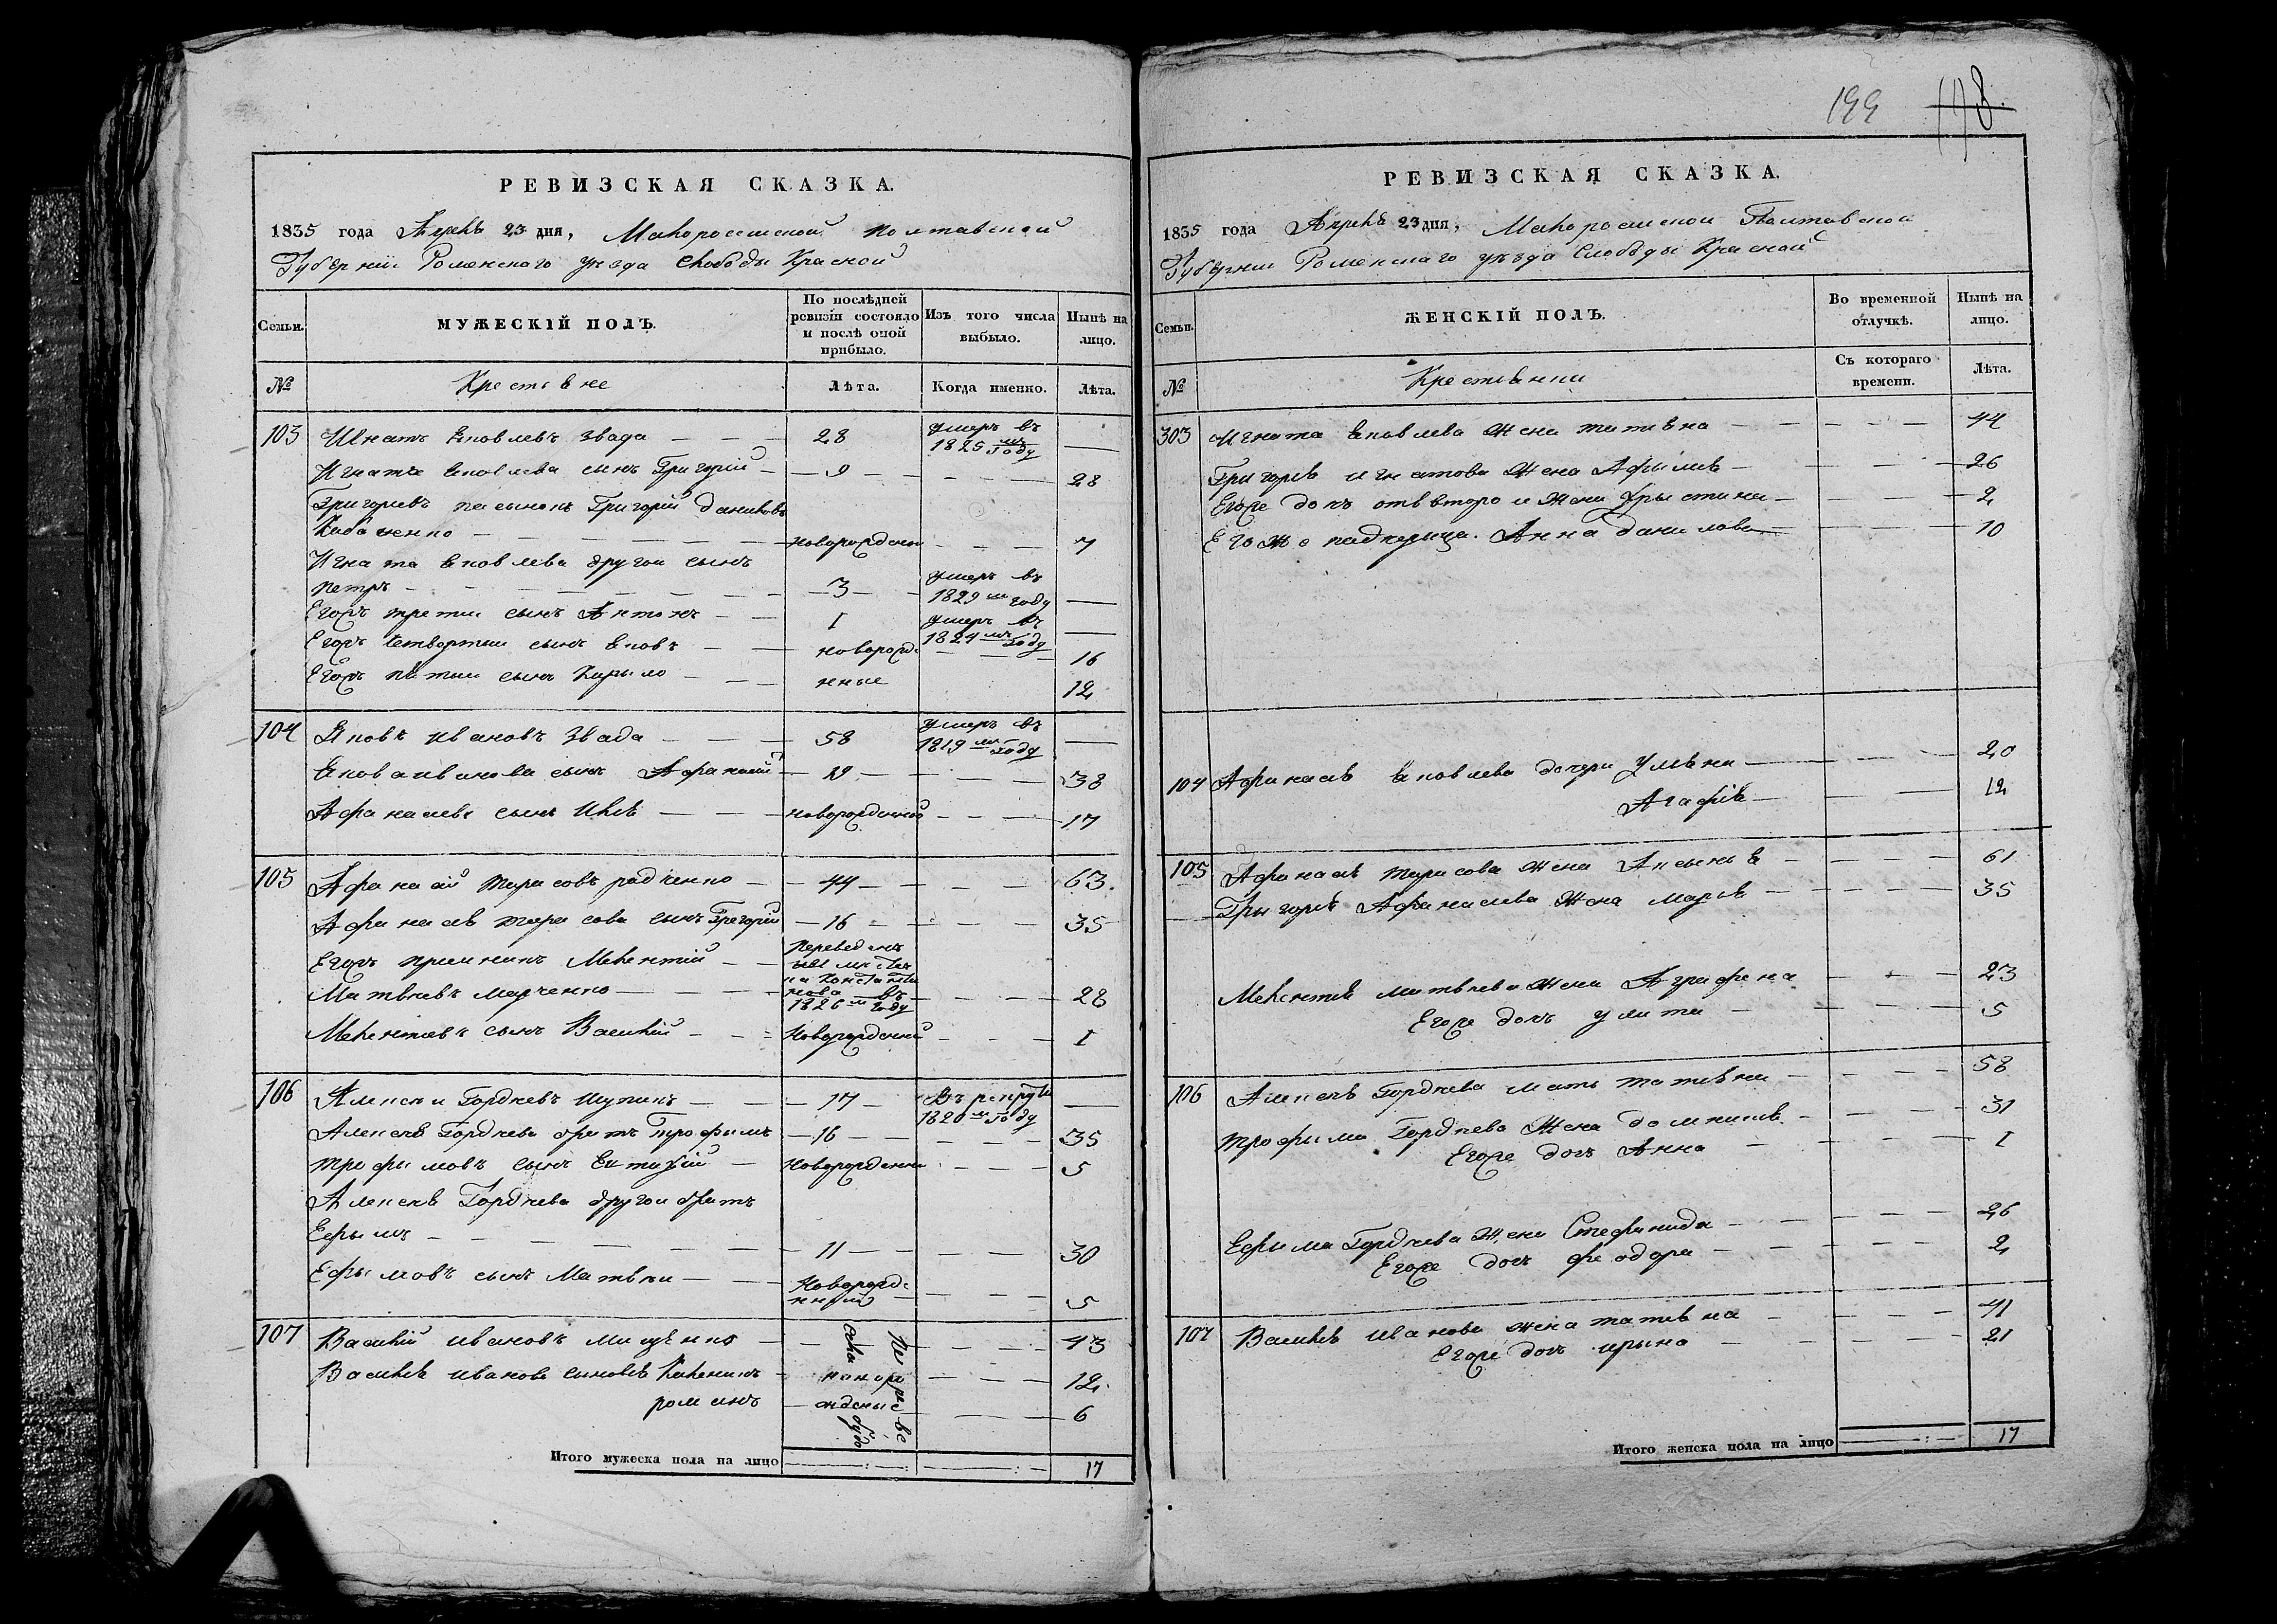 РЕВИЗСКАЯ СКАЗКА.
1835 года Апреля 23 дня, Малоросийской Полтавской
Губернии Роменского уезда Слободы Красной
Семьи.
МУЖЕСКІЙ ПОЛЪ.
По послѣдней ревизіи состояло и послѣ оной прибыло.
Изъ того числа выбыло.
Нынѣ на лицо.
№
Крестьяне
Лѣта.
Когда именно.
Лѣта.
103 Игнатъ Яковлевъ Звада 28 умеръ въ 1825 мъ году
Игната Яковлева сынъ Григорій 9 28
Григорьевъ пасынокъ Григорій Даниловъ
7
Игната Яковлева другой сынъ
Петръ 3 умеръ въ 1829 м году
Егожъ третий сынъ Антонъ 1 умеръ въ 1824 мъ году
Егожъ четвертый сынъ Яковъ новорожде 16
Егожъ пятый сынъ Кирыло нные 12
104 Яковъ Ивановъ Звада 58 умеръ въ 1819 м году
Якова Иванова сынъ Афанасий 19 38
Афанасьевъ сынъ Илья новорожденной 17
105 Афанасий Тарасовъ Радченко 44 63.
Афанасия Тарасова сынъ Григорий 16 35
Егожъ приймакъ Мелентий Переведенъ
Матвеевъ Марченко въ 1826 м году 28
Мелентиевъ сынъ Василий Новорожденый 1
106 Алексей Гордеевъ 17 Въ рекруты 1820 м году
Алексея Гордеева братъ Трофымъ 16 35
Трофымовъ сынъ Евтихий Новорожденны 5
Алексея Гордеева другой братъ
Ефымъ 11 30
Ефымовъ сынъ Матвей Новорожденный 5
107 Василий Ивановъ Мищенко 43
Василия Иванова сыновья 12.
Романъ 6
Итого мужеска пола на лицо 17
199
РЕВИЗСКАЯ СКАЗКА.
1835 года Апреля 23 дня, Малоросийской Полтавской
Губернии Роменского уезда Слободы Красной
Семьи.
ЖЕНСКІЙ ПОЛЪ.
Во временной отлучкѣ.
Нынѣ на лицо.
№
Крестьянки
Съ котораго времени.
Лѣта.
303 Игната Яковлева жена Татьяна 44
Григорья Игнатова жена Афымья 26
Егоже дочь от второй жены Христина 2
Егоже падчерица. Анна Данилова 10
104 Афанасия Яковлева дочери Ульяна 20
Агафия 12
105 Афанасия Тарасова жена Аксынья 61
Грыгория Афанасиева жена Марья 35
Мелентия Матвеева жена Аграфена 23
Егоже дочь Улита 5
106 Алексея Гордеева мать Татьяна 58
Трофыма Гордеева жена Домникия 31
Егоже дочь Анна 1
Ефыма Гордеева жена Стефанида 26
Егоже дочь Феодора 2
107 Василия Иванова жена Татьяна 41
Егоже дочь Ирына 21
Итого женска пола на лицо 17